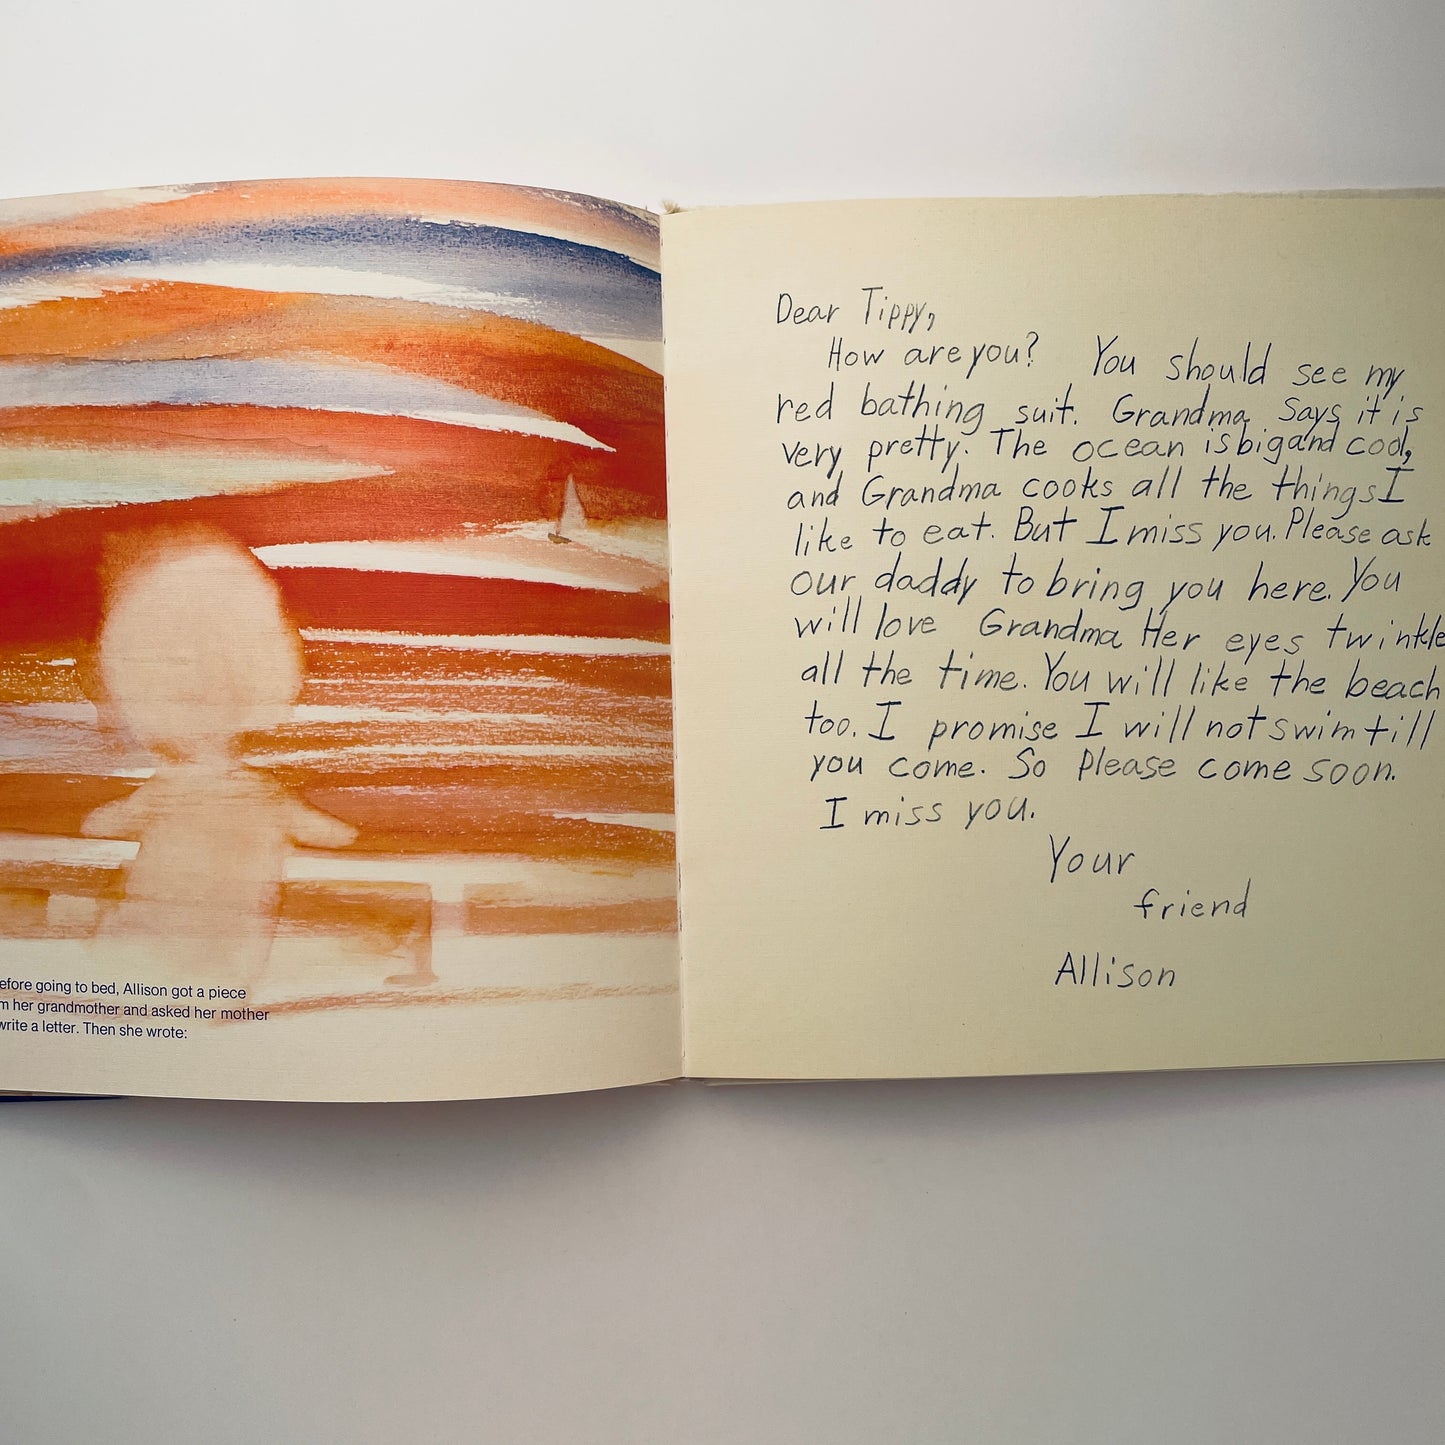 efore going to bed, Allison got a piece
m her grandmother and asked her mother
write a letter. Then she wrote:
Dear Tippy,
How are you? You should see my
red bathing suit. Grandma says it is
very pretty. The ocean is big and cool,
and Grandma cooks all the things I
like to eat. But I miss you. Please ask
our daddy to bring you here. You
will love Grandma Her eyes twinkle
all the time. You will like the beach
too. I promise I will not swim till
you come. So Please come soon.
I miss you.
Your
friend
Allison